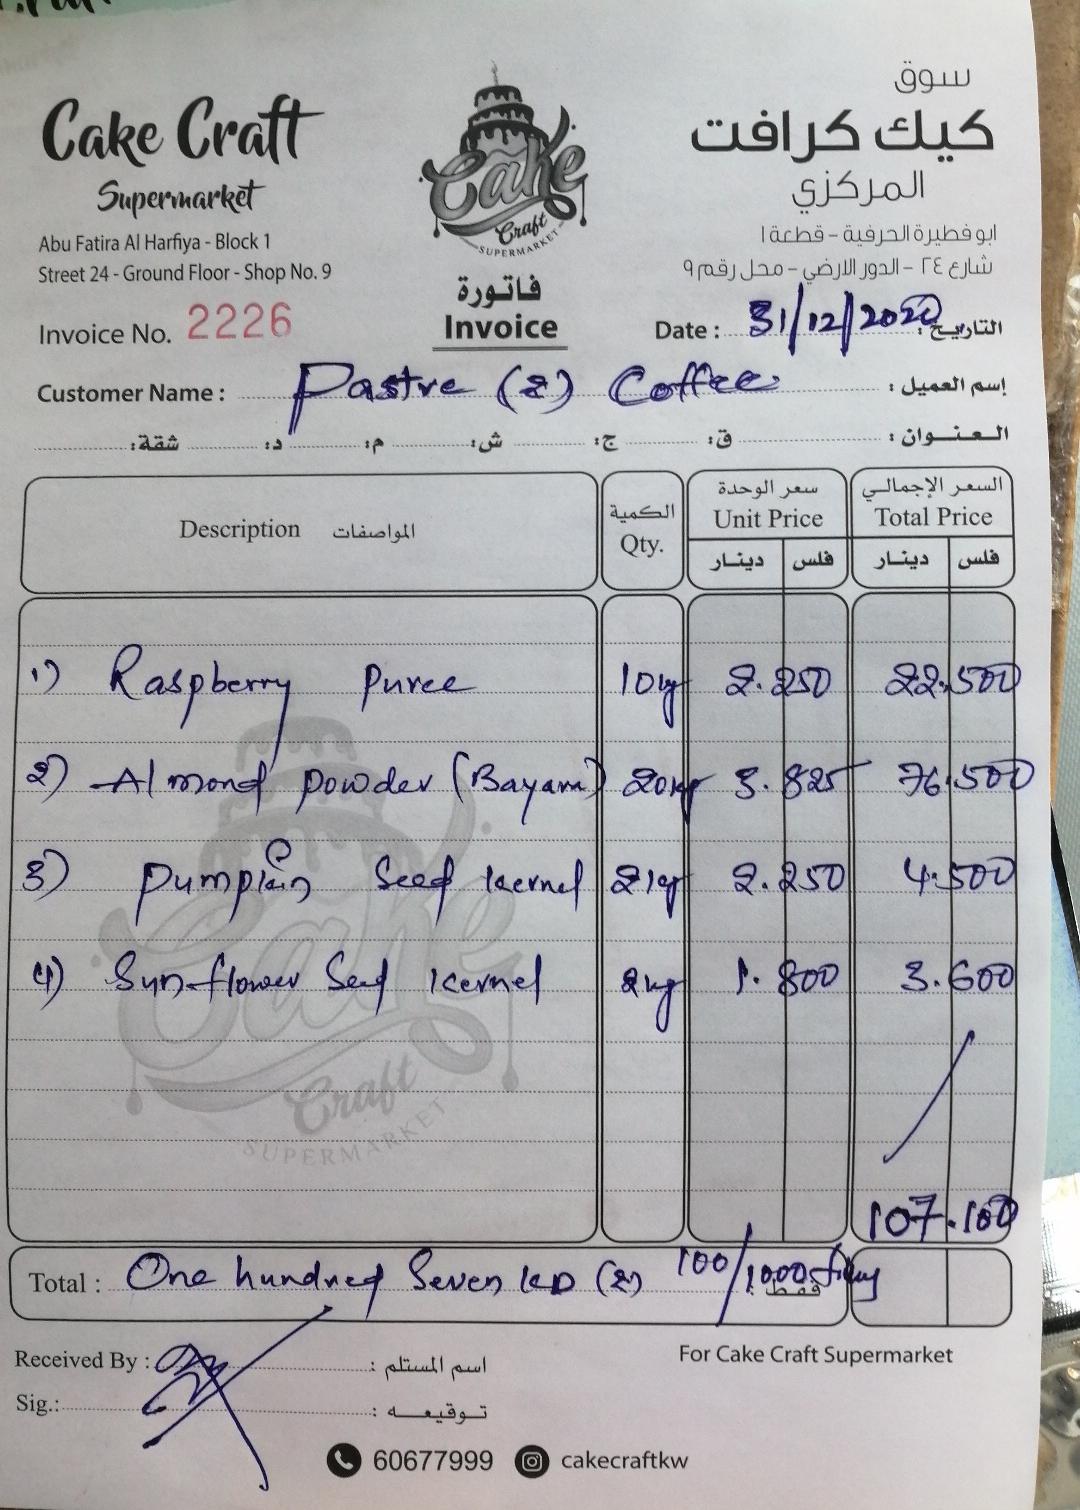 Cake Craft
Supermarket
Abu Fatira Al Harfiya - Block 1
Street 24 - Ground Floor - Shop No. 9
Invoice No. 2226
Cake
Craft
SUPERMARKET
فاتورة
Invoice
سوق
كيك كرافت
المركزي
ابو فطيرة الحرفية - قطعة ١
شارع ٢٤ - الدور الارضي - محل رقم ٩
Date : 31/12/2020 التاريخ :
Customer Name : Pastre (&) Coffee إسم العميل :
العنوان : ق: ج: ش: م: د: شقة:
Description المواصفات الكمية Qty. سعر الوحدة Unit Price السعر الإجمالي Total Price
دينار فلس دينار فلس
1) Raspberry Puree 10kg 2.250 22.500
2) Almond Powder (Bayam) 20kg 3.825 76.500
3) Pumpkin Seed Kernel 2kg 2.250 4.500
4) Sunflower Seed Kernel 2kg 1.800 3.600
Cake
Craft
SUPERMARKET
107.100
Total : One hundred Seven KD (&) 100/1000 فقط
Received By : اسم المستلم :
For Cake Craft Supermarket
Sig.: توقيعه :
60677999 cakecraftkw